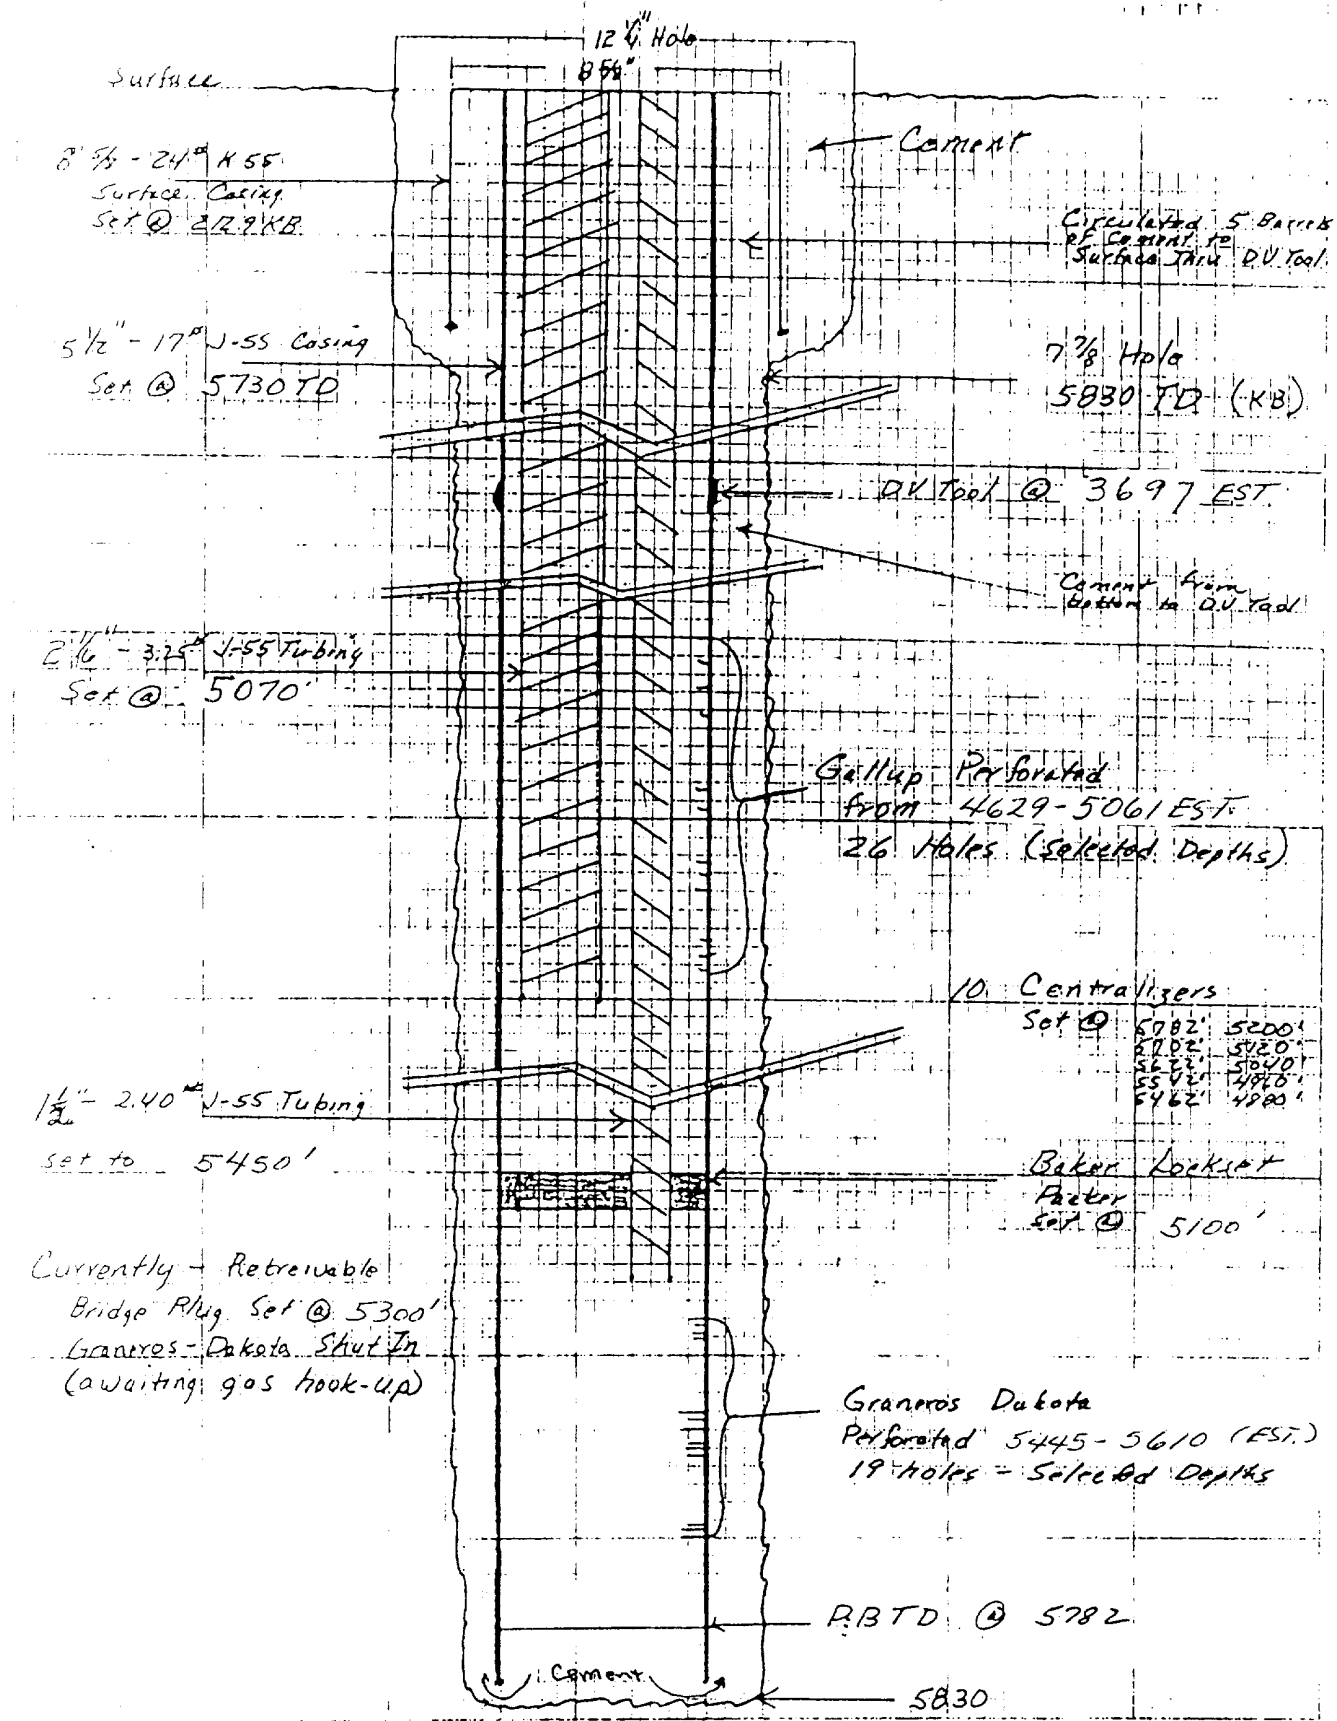 12 1/4" Hole
8 5/8"
Surface
Cement
8 5/8 - 24# K55
Surface Casing
Set @ 229 KB
Circulated 5 Barrels
of Cement to
Surface Thru DV Tool
5 1/2" - 17# J-55 Casing
Set @ 5730 TD
7 7/8 Hole
5830 TD (KB)
DV Tool @ 3697 EST.
Cement from
bottom to DV Tool
2 1/16" - 3.25# J-55 Tubing
Set @ 5070'
Gallup Perforated
from 4629-5061 EST.
26 Holes (Selected Depths)
10 Centralizers
Set @ 5782' 5200'
5702' 5120'
5622' 5040'
5542' 4960'
5462' 4880'
1 1/2" - 2.40# J-55 Tubing
set to 5450'
Baker Lockset
Packer
set @ 5100'
Currently - Retreivable
Bridge Plug Set @ 5300'
Graneros-Dakota Shut In
(awaiting gas hook-up)
Graneros Dakota
Perforated 5445-5610 (EST.)
19 holes - Selected Depths
P.B.T.D. @ 5782
Cement
5830